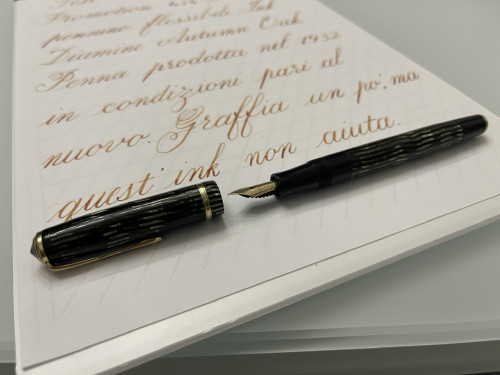 Promotion
pennino flessibile Ink
Diamine Autumn Oak
Penna prodotta nel 1932
in condizioni pari al
nuovo. Graffia un po', ma
quest' ink non aiuta.